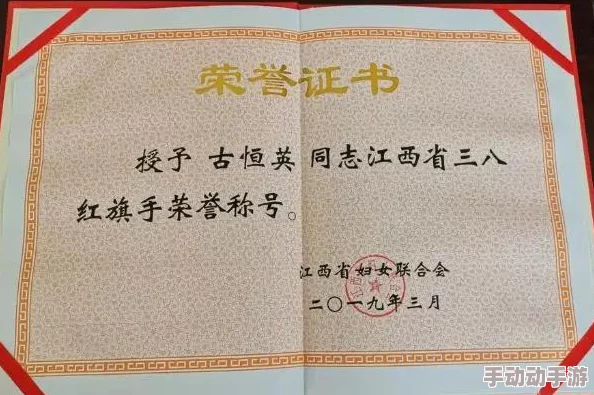 荣誉证书
授予 古恒英 同志江西省三八
红旗手荣誉称号。
江西省妇女联合会
二〇一九年三月
手动动手游